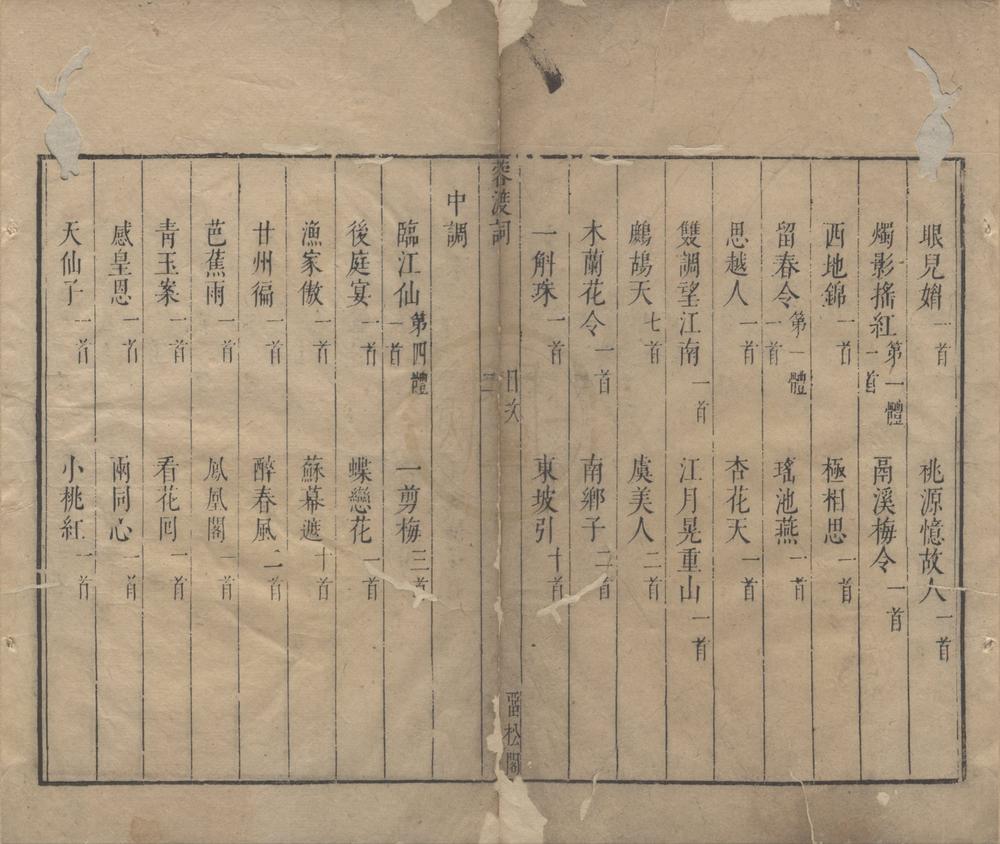 眼兒媚一首 桃源憶故人一首
燭影搖紅第一體一首 鬲溪梅令一首
西地錦一首 極相思一首
留春令第一體一首 瑤池燕一首
思越人一首 杏花天一首
雙調望江南一首 江月晃重山一首
鷓鴣天七首 虞美人二首
木蘭花令一首 南鄉子二首
一斛珠一首 東坡引十首
蓉渡詞 目次 二 畱松閣
中調
臨江仙第四體一首 一剪梅三首
後庭宴一首 蝶戀花一首
漁家傲一首 蘇幕遮十首
甘州徧一首 醉春風二首
芭蕉雨一首 鳳凰閣一首
青玉案一首 看花囘一首
感皇恩一首 兩同心一首
天仙子一首 小桃紅一首